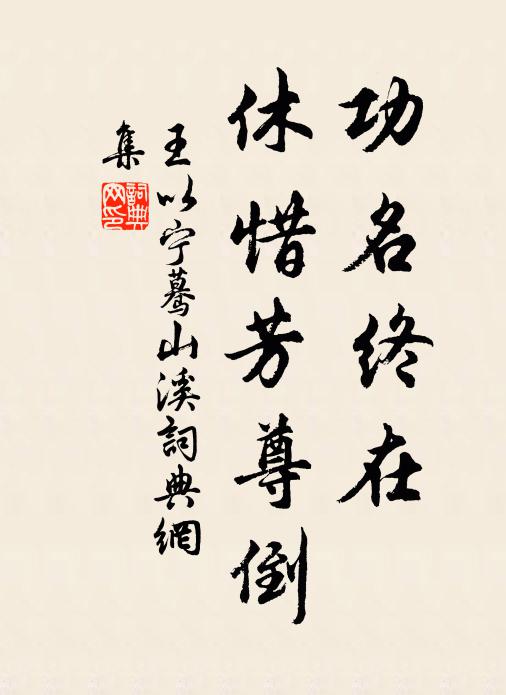 功名終在
休惜芳尊倒
王以宁驀山溪詞典網
集
詞典
网印